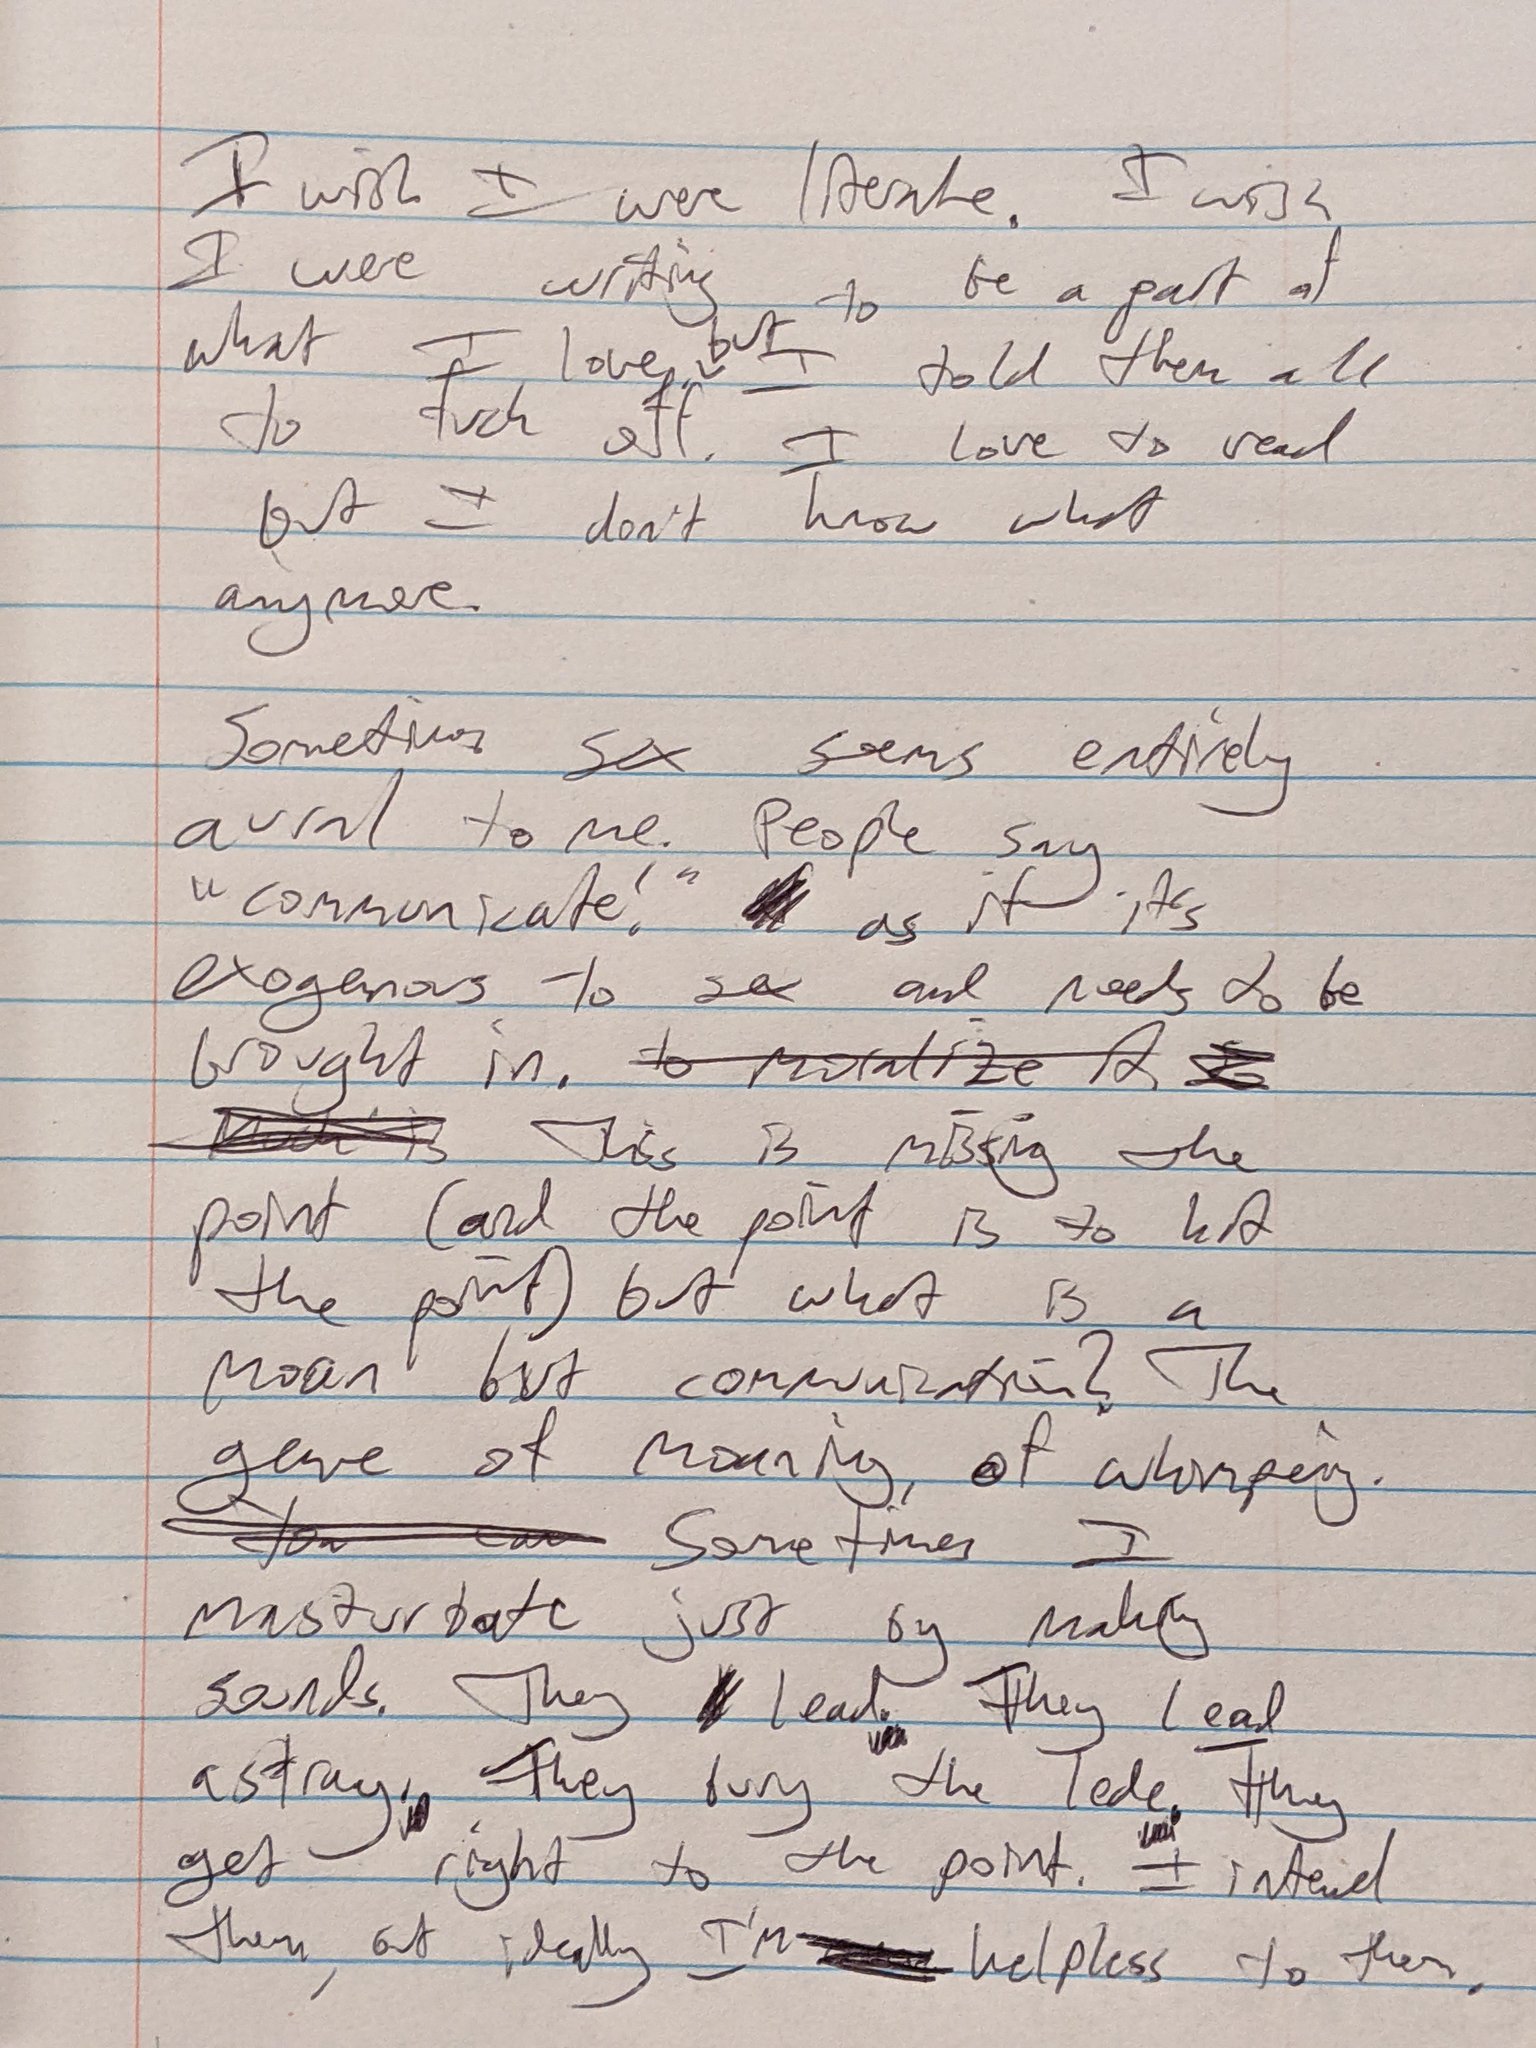 I wish I were literate. I wish
I were writing to be a part of
what I love, but I told them all
to fuck off. I love to read
but I don't know what
anymore.
Sometimes sex seems entirely
aural to me. People say
"communicate!" as if its
exogenous to sex and needs to be
brought in. to moralize it
This is missing the
point (and the point is to hit
the point) but what is a
moan but communication? The
genre of moaning, of whimpering.
You can Sometimes I
masturbate just by making
sounds. They lead. They lead
astray. They bury the lede. They
get right to the point. I intend
them, but ideally I'm helpless to them.